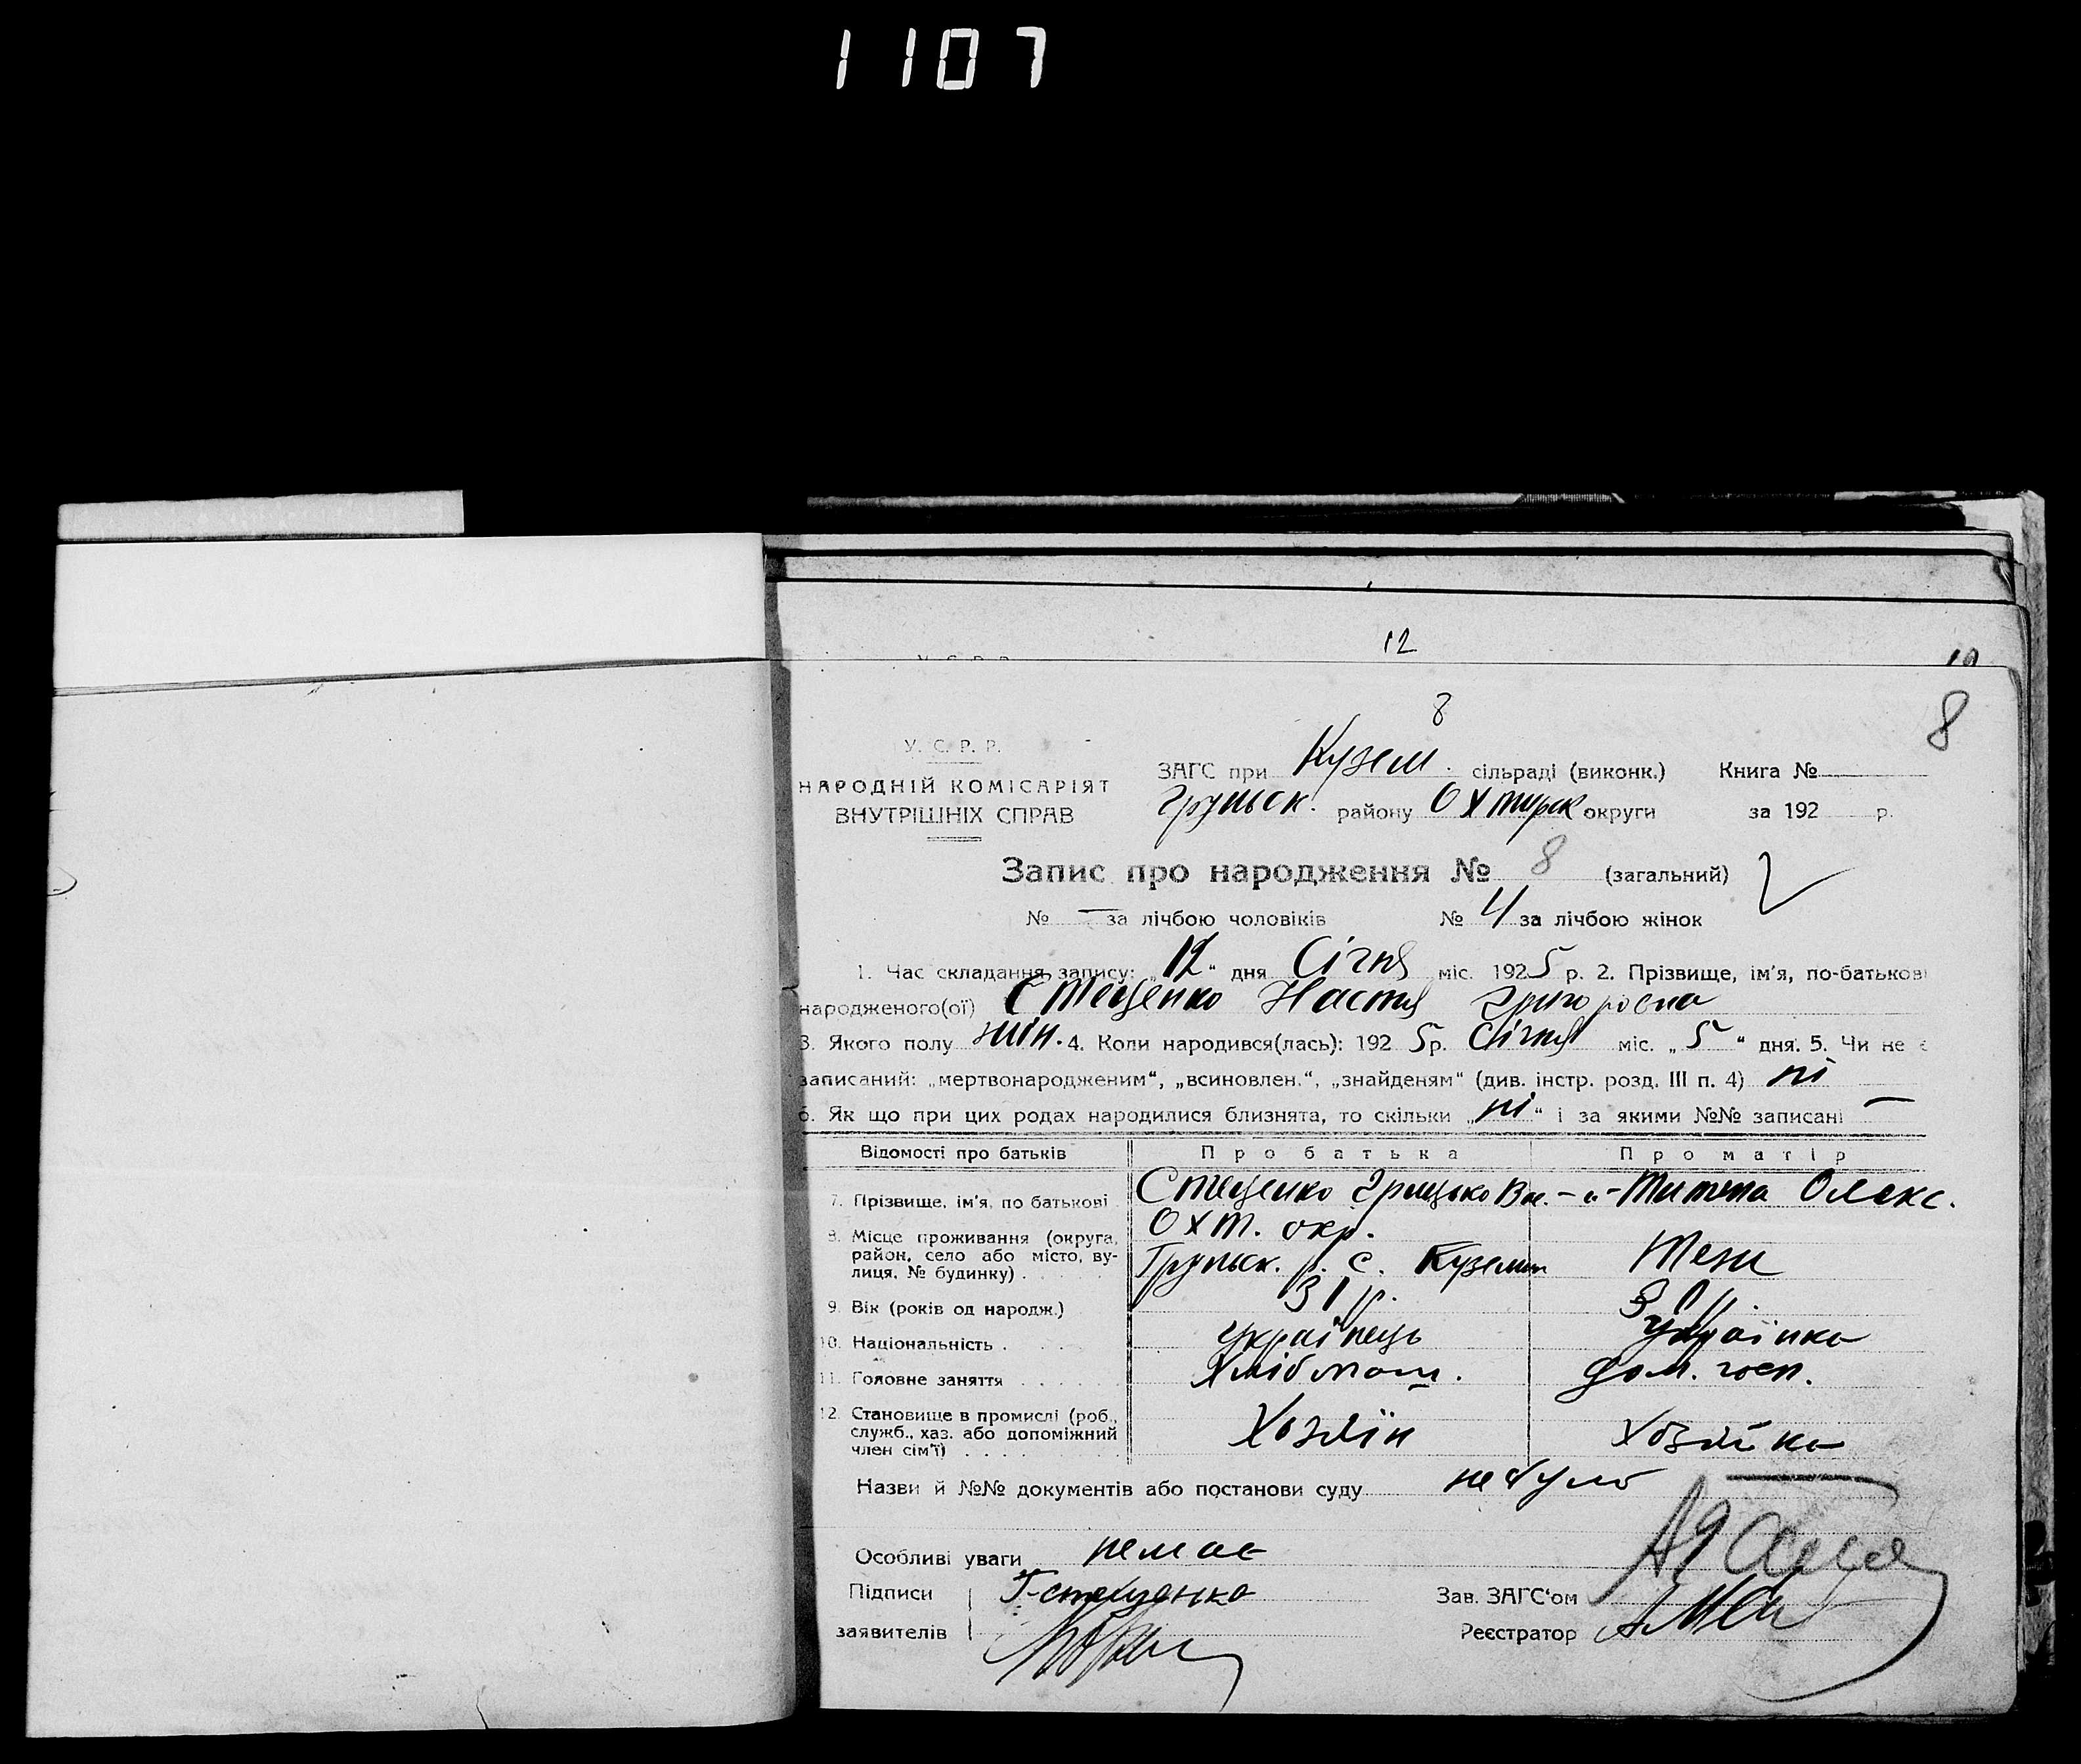 1107
12
10
8
8
У. С. Р. Р.
НАРОДНІЙ КОМІСАРІЯТ
ВНУТРІШНІХ СПРАВ
ЗАГС при Кузем. сільраді (виконк.) Книга №
Груньск. району Охтирск округи за 192 р.
Запис про народження № 8 (загальний)
№ — за лічбою чоловіків № 4 за лічбою жінок
1. Час складання запису: „12“ дня Січня міс. 1925 р. 2. Прізвище, ім'я, по-батькові
народженого(ої) Стеценко Настя Григоровна
3. Якого полу жін. 4. Коли народився(лась): 1925 р. Січня міс. „5“ дня. 5. Чи не є
записаний: „мертвонародженим“, „всиновлен.“, „знайденям“ (див. інстр. розд. III п. 4) ні
6. Як що при цих родах народилися близнята, то скільки „ні“ і за якими №№ записані —
Відомості про батьків Про батька Про матір
7. Прізвище, ім'я, по батькові Стеценко Грицько Вас. -„- Титяна Олекс.
8. Місце проживання (округа, район, село або місто, вулиця, № будинку) Охт. окр.
Груньск. р. с. Куземин Теж
9. Вік (років од народж.) 31 р. 30 р.
10. Національність українець українка
11. Головне заняття Хлібопаш. дом. госп.
12. Становище в промислі (роб., служб., хаз. або допоміжний член сім'ї) Хозяїн хозяйка
Назви й №№ документів або постанови суду не було
Особливі уваги немає
Підписи Г-стеценко Зав. ЗАГС‘ом
заявителів Реєстратор